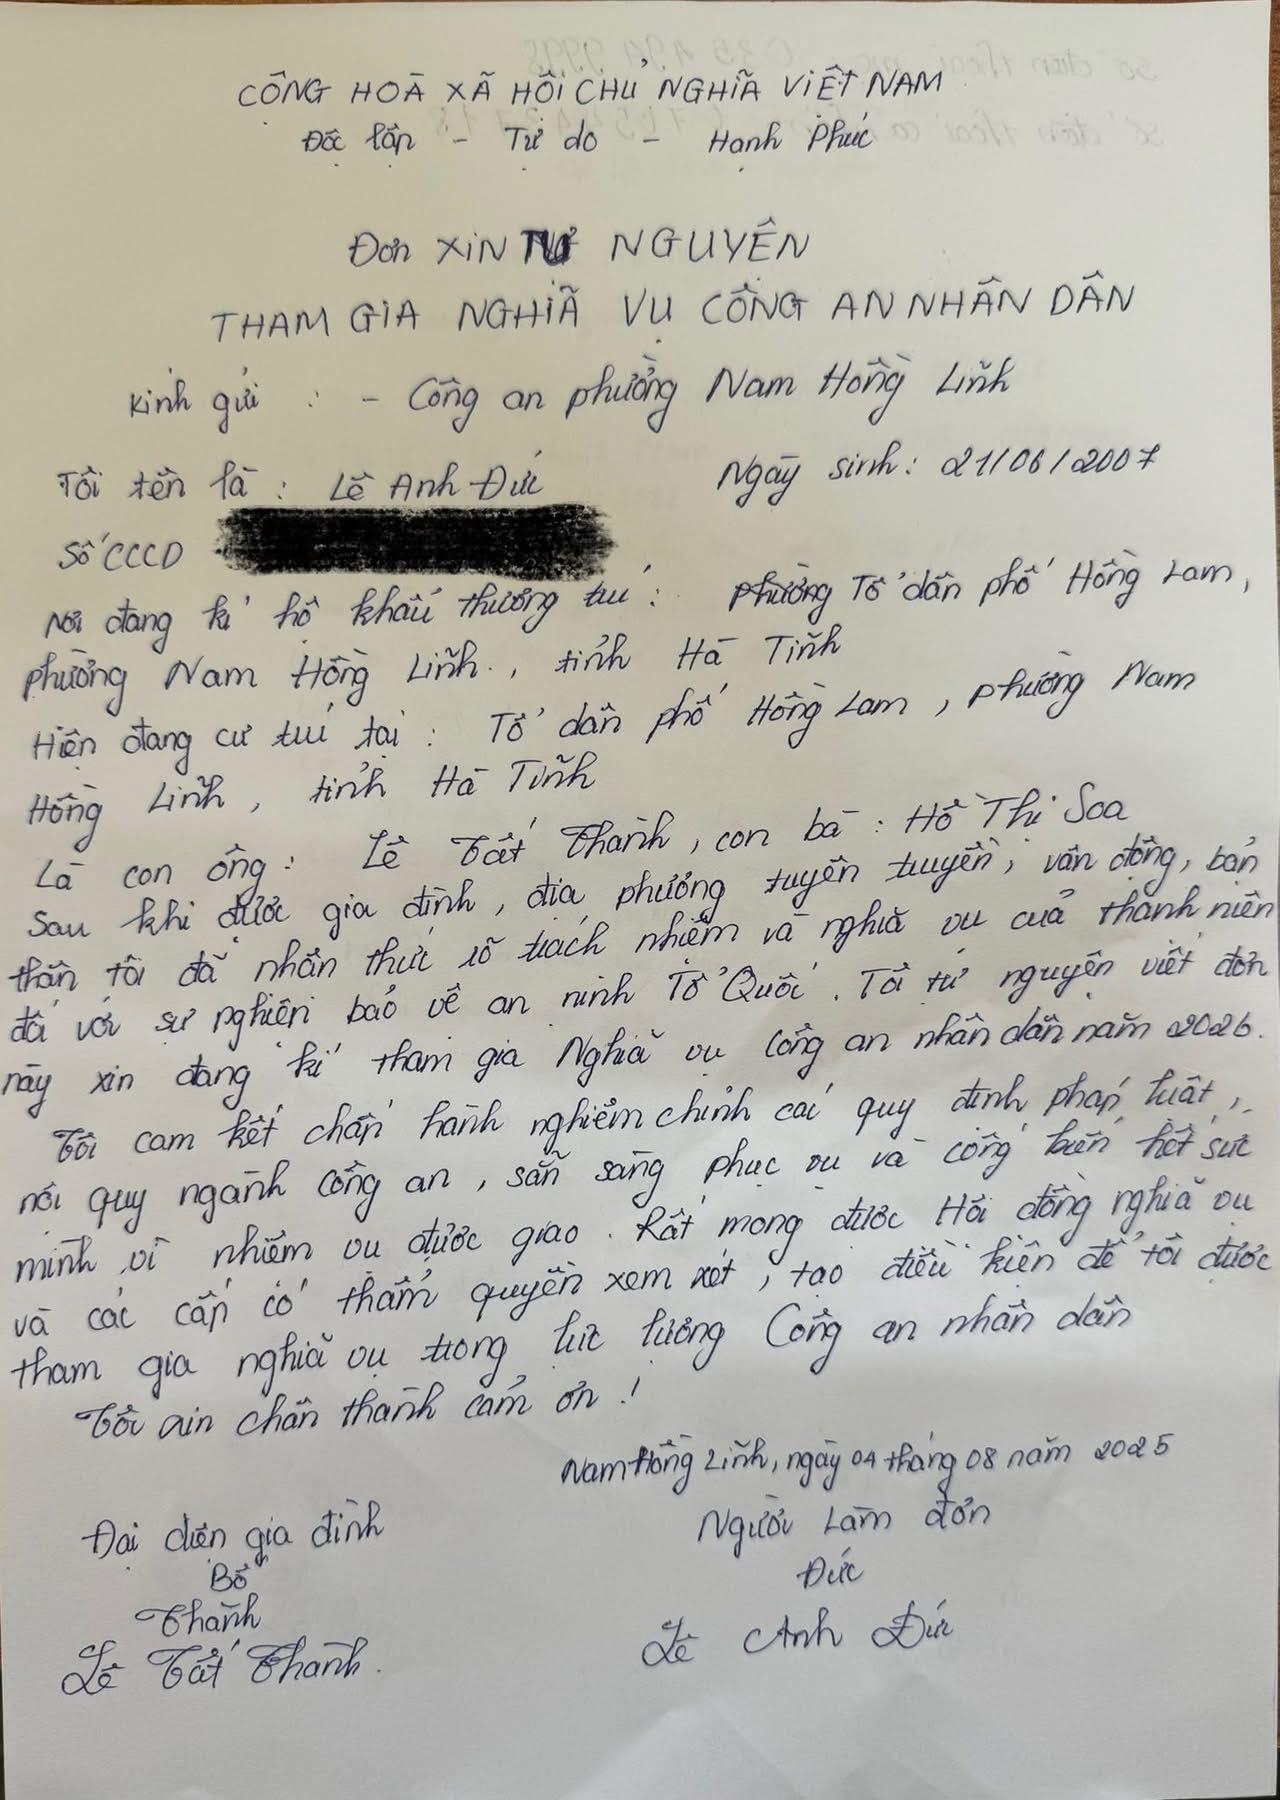 CỘNG HOÀ XÃ HỘI CHỦ NGHĨA VIỆT NAM
Độc lập - Tự do - Hạnh Phúc
Đơn XIN TỰ NGUYỆN
THAM GIA NGHĨA VỤ CÔNG AN NHÂN DÂN
Kính gửi : - Công an phường Nam Hồng Lĩnh
Tôi tên là : Lê Anh Đức Ngày sinh: 21/06/2007
Số CCCD
Nơi đăng kí hộ khẩu thường trú : Phường Tổ dân phố Hồng Lam,
phường Nam Hồng Lĩnh, tỉnh Hà Tĩnh
Hiện đang cư trú tại : Tổ dân phố Hồng Lam, phường Nam
Hồng Lĩnh, tỉnh Hà Tĩnh
Là con ông: Lê Tất Thành, con bà : Hồ Thị Soa
Sau khi được gia đình, địa phương tuyên truyền, vận động, bản
thân tôi đã nhận thức rõ trách nhiệm và nghĩa vụ của thanh niên
đối với sự nghiệp bảo vệ an ninh Tổ Quốc. Tôi tự nguyện viết đơn
này xin đăng kí tham gia Nghĩa vụ Công an nhân dân năm 2026.
Tôi cam kết chấp hành nghiêm chỉnh các quy định pháp luật,
nội quy ngành Công an, sẵn sàng phục vụ và cống hiến hết sức
mình vì nhiệm vụ được giao. Rất mong được Hội đồng nghĩa vụ
và các cấp có thẩm quyền xem xét, tạo điều kiện để tôi được
tham gia nghĩa vụ trong lực lượng Công an nhân dân
Tôi xin chân thành cảm ơn !
Nam Hồng Lĩnh, ngày 04 tháng 08 năm 2025
Đại diện gia đình Người làm đơn
Bố Đức
Thành
Lê Tất Thành. Lê Anh Đức